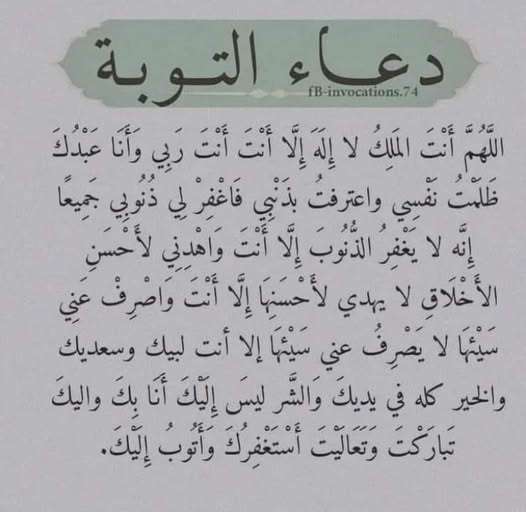 دعاء التوبة
fB-invocations.74
اللَّهُمَّ أَنْتَ المَلِكُ لا إِلَهَ إِلَّا أَنْتَ أَنْتَ رَبِي وَأَنَا عَبْدُكَ
ظَلَمْتُ نَفْسِي واعترفتُ بذَنْبِي فَاغْفِرْ لِي ذُنُوبِي جَمِيعًا
إِنَّه لا يَغْفِرُ الذُّنُوبَ إِلَّا أَنْتَ وَاهْدِنِي لأَحْسَنِ
الأَخْلَاقِ لا يهدي لأَحْسَنِهَا إِلَّا أَنْتَ وَاصْرِفْ عَنِي
سَيْئَهَا لا يَصْرِفُ عني سَيْئَهَا إلا أنت لبيك وسعديك
والخير كله في يديكَ وَالشَّر ليسَ إِلَيْكَ أَنَا بِكَ واليكَ
تَبارَكْتَ وَتَعَالَيْتَ أَسْتَغْفِرُكَ وَأَتُوبُ إِلَيْكَ.